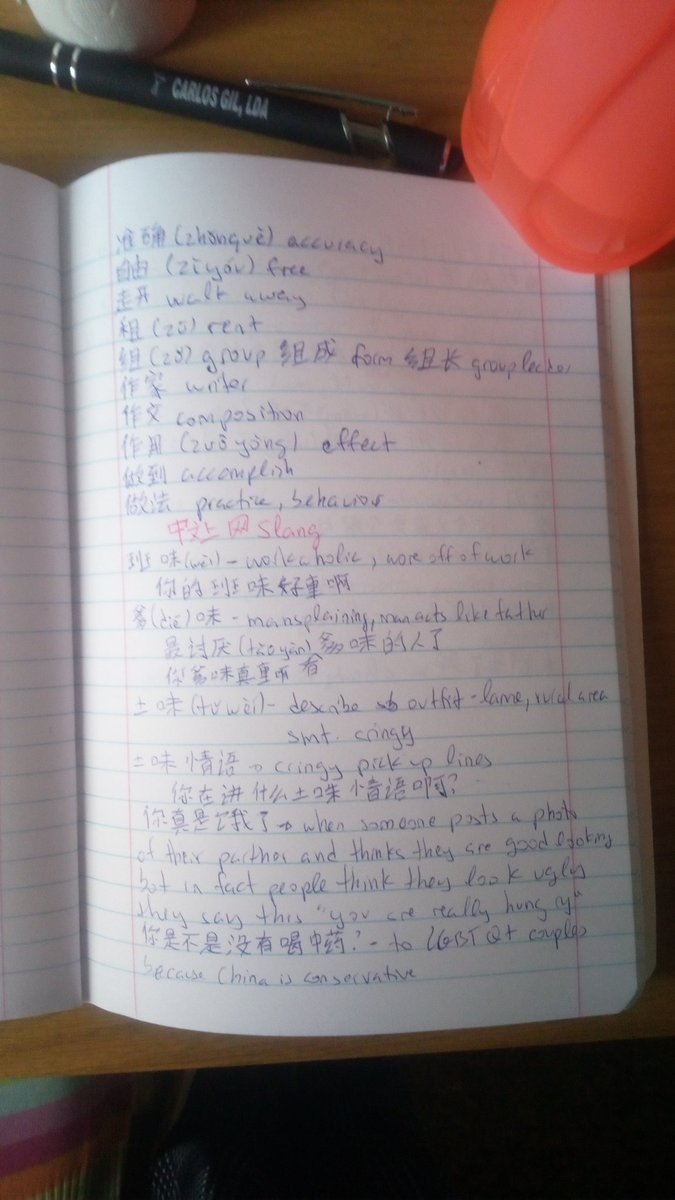 CARLOS GIL, LDA
准确 (zhǔnquè) accuracy
自由 (zìyóu) free
走开 walk away
租 (zū) rent
组 (zǔ) group 组成 form 组长 group leader
作家 writer
作文 composition
作用 (zuòyòng) effect
做到 accomplish
做法 practice, behavior
中文上网 Slang
班味 (wèi) - workaholic, wore off of work
你的班味好重啊
爹 (diē) 味 - mansplaining, man acts like father
最讨厌 (tǎoyàn) 爹味的人了
你爹味真重啊
土味 (tǔ wèi) - describe sb outfit - lame, rural area
smt. cringy
土味情话 → cringy pick up lines
你在讲什么土味情话啊?
你真是饿了 → when someone posts a photo
of their partner and thinks they are good looking
but in fact people think they look ugly
they say this "you are really hungry"
你是不是没有喝中药? - to LGBTQ+ couples
because China is conservative